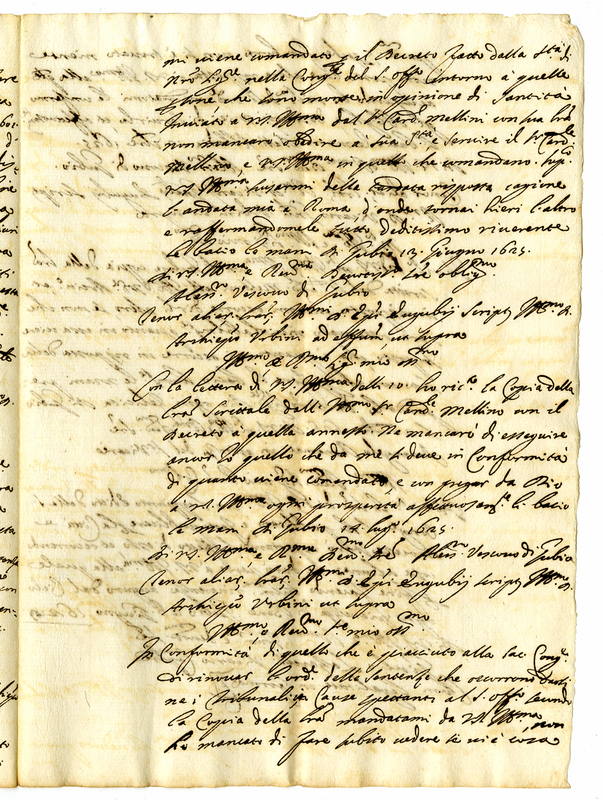 mi viene comandato p il Decreto fatto dalla S.tà di
Nro Sig.re nella Cong.ne del S. Off.o intorno à quelle
che sono morte in opinione di santità
Inviato a VS. Ill.ma dal S.r Card. Mellini con sua lrã
non mancarò obedire a sua S.tà, e servire il S.r Card.le
Mellino, e VS. Ill.ma in quello che comandano. Sup.co
VS. Ill.ma scusarmi della tardata risposta cagione
l'andata mia à Roma, d'onde tornai hieri l'altro
e raffermandomele tutto deditissimo riverente
le bacio le mani. Di Gubio 13. Giugno 1625.
Di VS. Ill.ma e Rev.ma Ser.re oblig.mo
Aless.o Vescovo di Gubio
Tenor alias lrãs Ill.mi D. Epi Eugubij script. Ill.mo D.
Archiepo Urbini ut supra
Ill.mo et R.mo Sig.re mio oss.mo
Con la lettera di VS. Ill.ma delli 10. ho ric.to la Copia della
lrã scrittale dall' Ill.mo S.r Card.le Mellino con il
Decreto à quella annesso. Ne mancarò di esseguire
ancor io quello che da me si deve in Conformità
di quanto viene comandato, e con pregar da Dio
à VS. Ill.ma ogni prosperità le bacio
le mani. Di Gubio 14 1625.
Di VS. Ill.ma e R.ma Aless.o Vescovo di Gubio
Tenor alias lrãs Ill.mi D. Epi Eugubij script. Ill.mo D.
Archiepo Urbini ut supra
Ill.mo e Rev.mo S.re mio oss.mo
In Conformità di quello che è piacciuto alla Sac. Cong.ne
di rinovar l'ord.e delle sentenze che occorrono
ne i Tribunali Cause spettanti al S. Off.o secondo
la Coppia della lrã mandatami da VS. Ill.ma non
hò mancato di fare subito vedere se vi è cosa